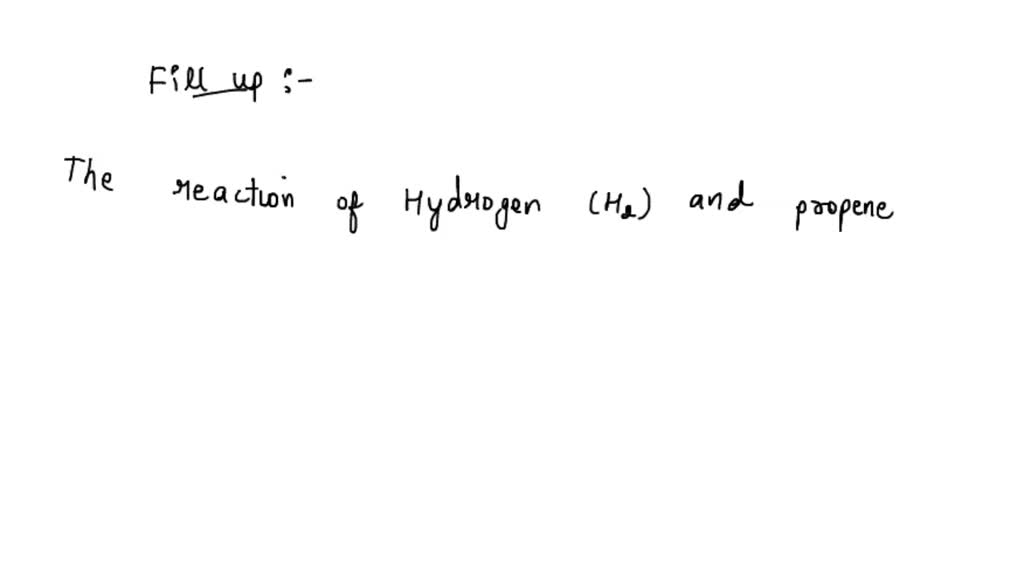 Fill up :-
The reaction of Hydrogen (H2) and propene